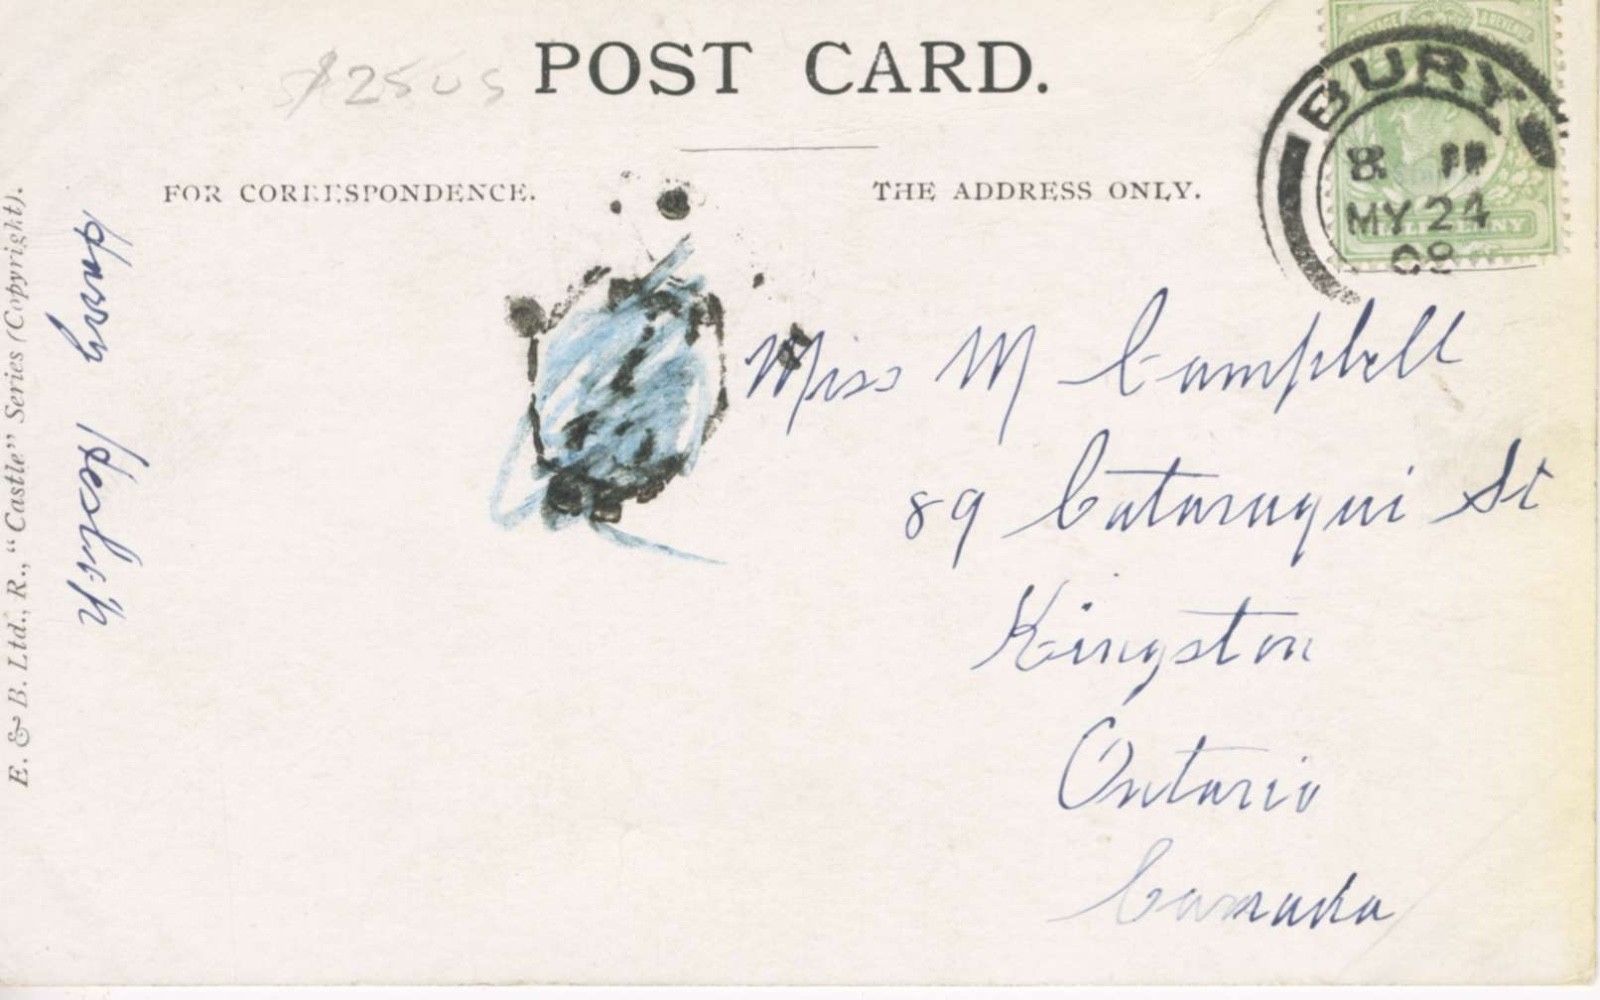 $25 US
POST CARD.
FOR CORRESPONDENCE.
THE ADDRESS ONLY.
BURY
8 II
MY 24
08
HALFPENNY
Miss M Campbell
89 Cataraqui St
Kingston
Ontario
Canada
Harry
E. & B. Ltd., R., "Castle" Series (Copyright).